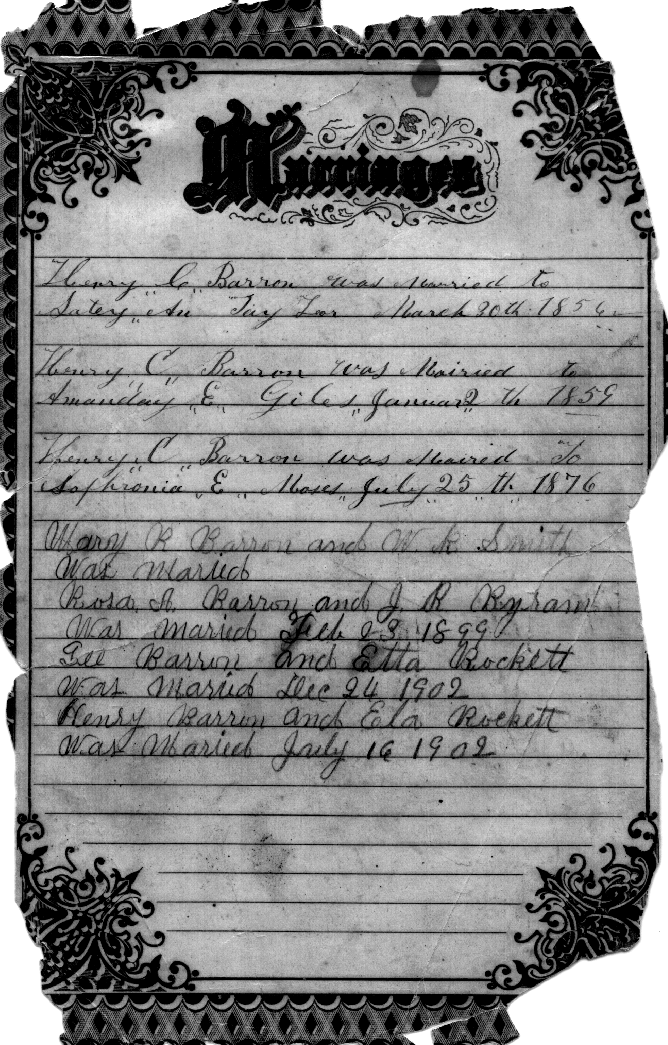 Marriages
Henry C Barron was Married to
March 1856
Henry "C" Barron was Mairied to
Amanday "E" Giles "January 2 th 1859
Henry "C" Barron was Maired To
Sophronia "E" Moses "July 25 "th" 1876
Mary R Barron and W. R Smith
Was Maried
Rosa A. Barron and J R Byram
Was Maried Feb 23 1899
Gee Barron and Etta Rockett
Was Maried Dec 24 1902
Henry Barron and Ela Rockett
Was Maried July 16 1902